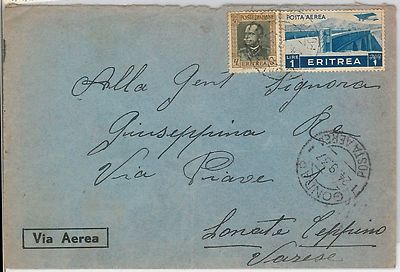 POSTE ITALIANE
ERITREA
POSTA AEREA
LIRE 1
ERITREA
Alla Gent Signora
Giuseppina Re
Via Piave
Lonate Ceppino
Varese
POSTA AEREA
24 9 37
Via Aerea